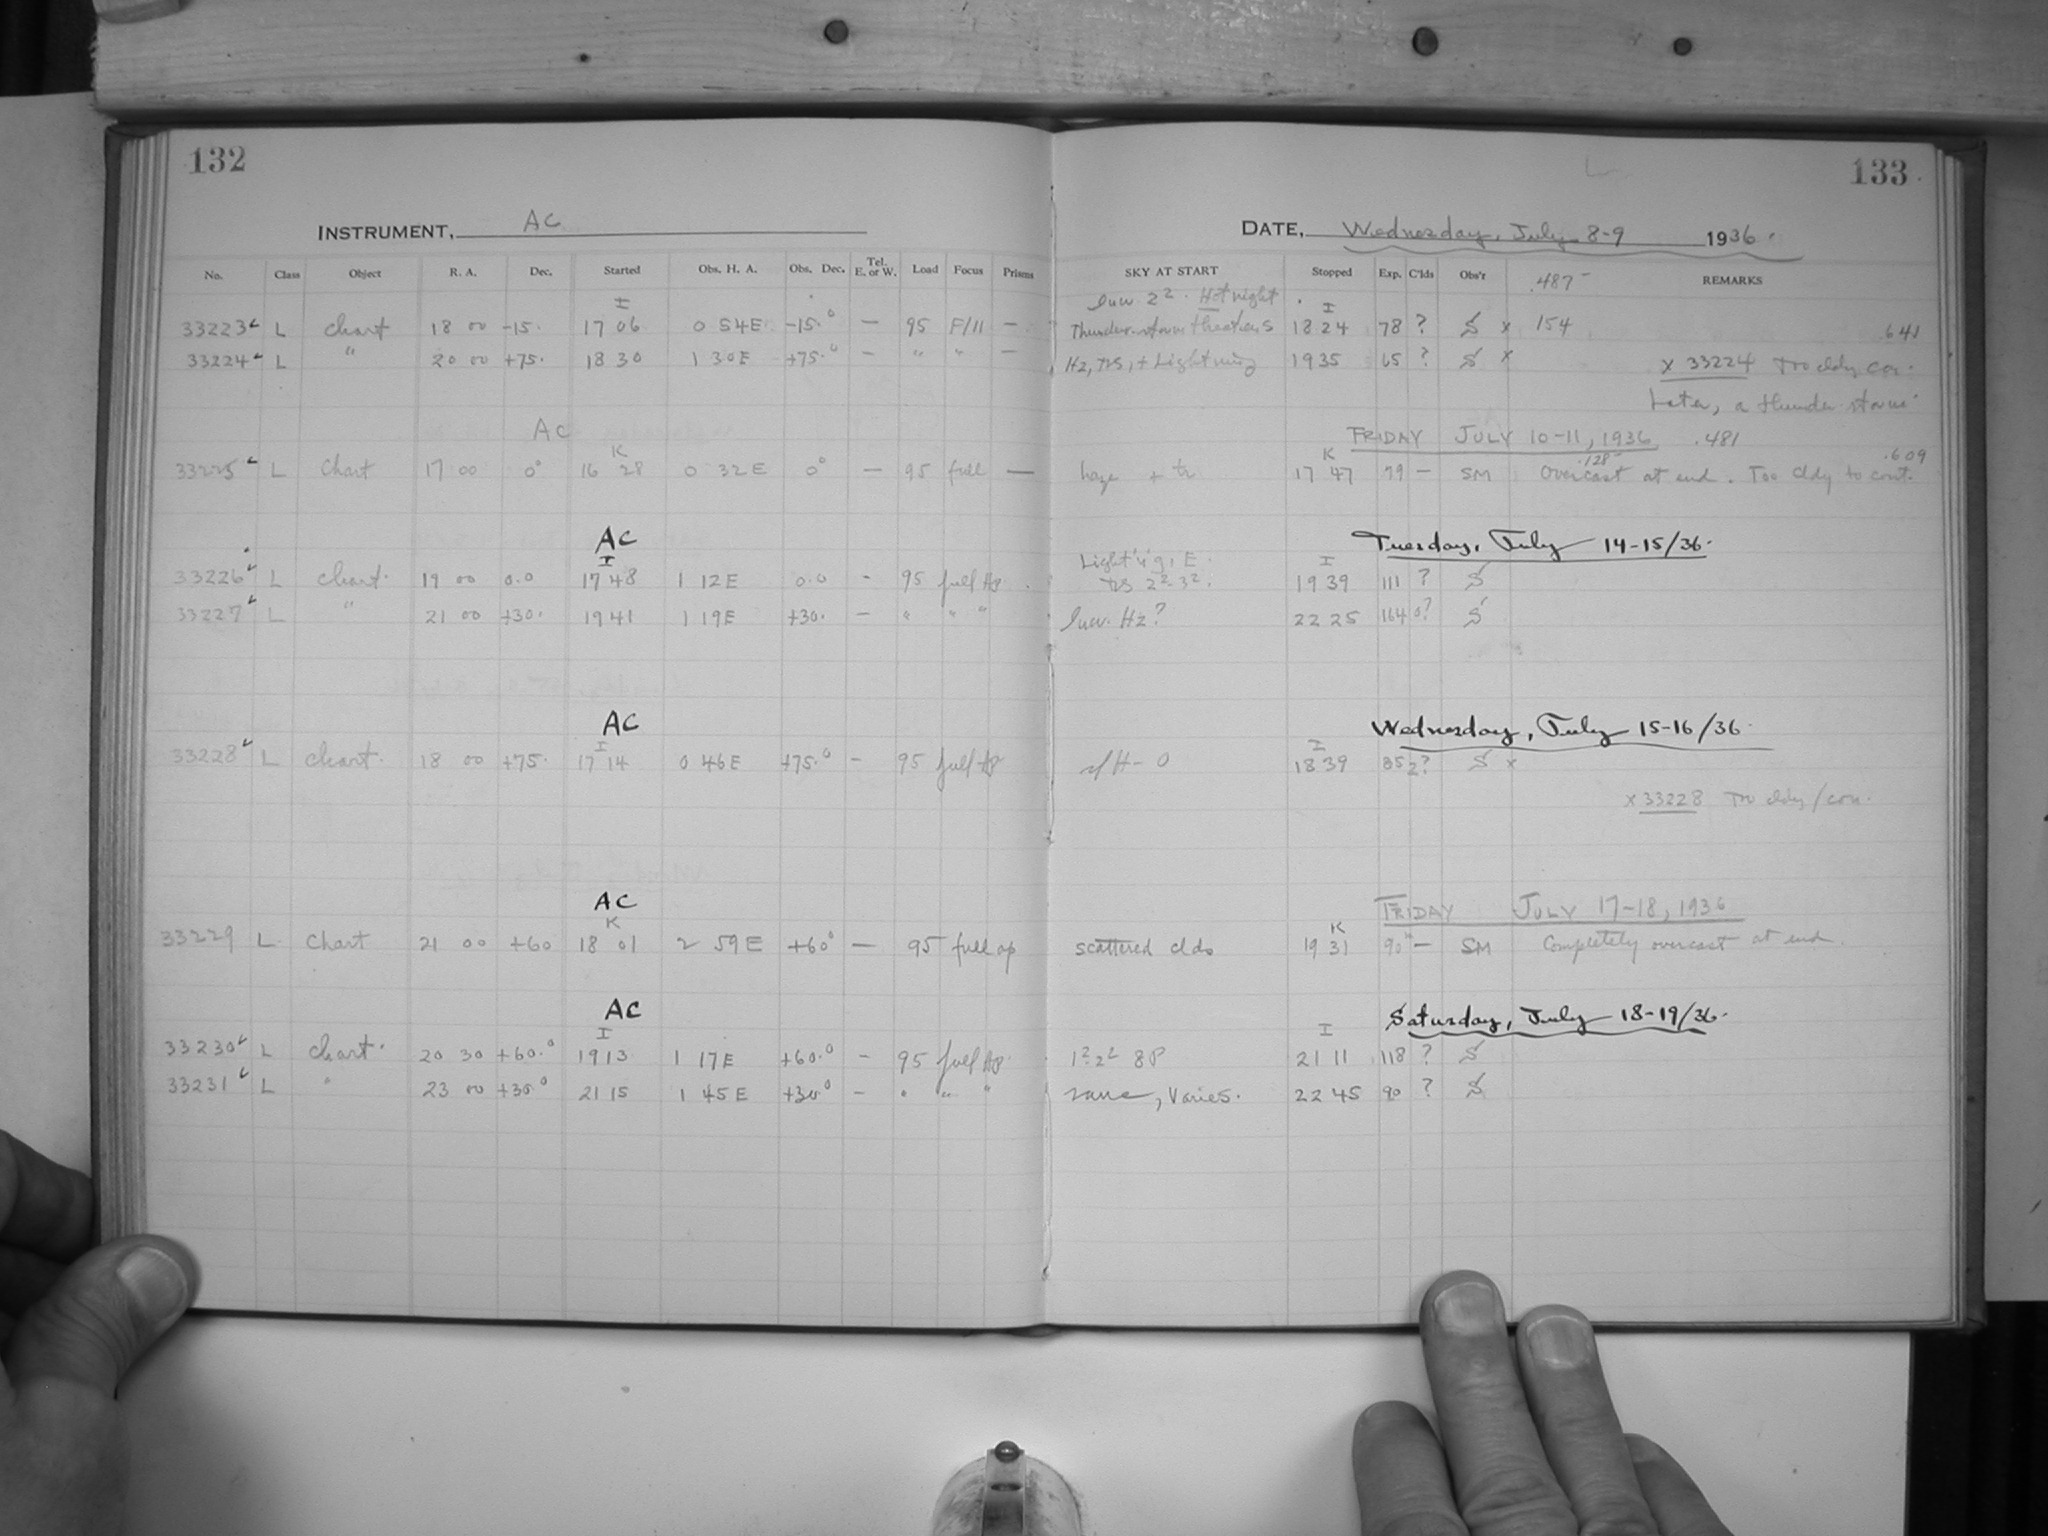 132
133
INSTRUMENT, AC
DATE, Wednesday, July 8-9 1936.
No. Class Object R. A. Dec. Started Obs. H. A. Obs. Dec. Tel. E. or W. Load Focus Prisms SKY AT START Stopped Exp. C'lds Obs'r .487 REMARKS
I 2². Hot night I
33223 L Chart 18 00 -15. 17 06 0 54 E -15.° — 95 F/11 — Thunder-storm threatens 18 24 78 ? S x 154 .641
33224 L " 20 00 +75. 18 30 1 30 E +75.° — " " — Hz, + Lightning 19 35 65 ? S x x 33224 Too cldy con.
Later, a thunder storm
AC FRIDAY JULY 10-11, 1936 .481
K K .128 .609
33225 L Chart 17 00 0° 16 28 0 32 E 0° — 95 full — haze + tr 17 47 79 — SM Overcast at end. Too cldy to cont.
AC Tuesday, July 14-15/36.
I Light'n'g, E. I
33226 L Chart. 19 00 0.0 17 48 1 12 E 0.0 - 95 full Ap. 2² 3². 19 39 111 ? S
33227 L " 21 00 +30. 19 41 1 19 E +30. — " " " Hz? 22 25 164 0? S
AC Wednesday, July 15-16/36.
I I
33228 L Chart. 18 00 +75. 17 14 0 46 E +75.° — 95 full Ap 0 18 39 85 2? S x
x 33228 Too cldy/con.
AC FRIDAY JULY 17-18, 1936
K K
33229 L Chart 21 00 +60 18 01 2 59 E +60° — 95 full ap scattered clds 19 31 90 — SM Completely overcast at end.
AC Saturday, July 18-19/36.
I I
33230 L Chart. 20 30 +60.° 19 13 1 17 E +60.° — 95 full Ap. 1² 2² 8P 21 11 118 ? S
33231 L " 23 00 +30° 21 15 1 45 E +30° — " " " same, Varies. 22 45 90 ? S